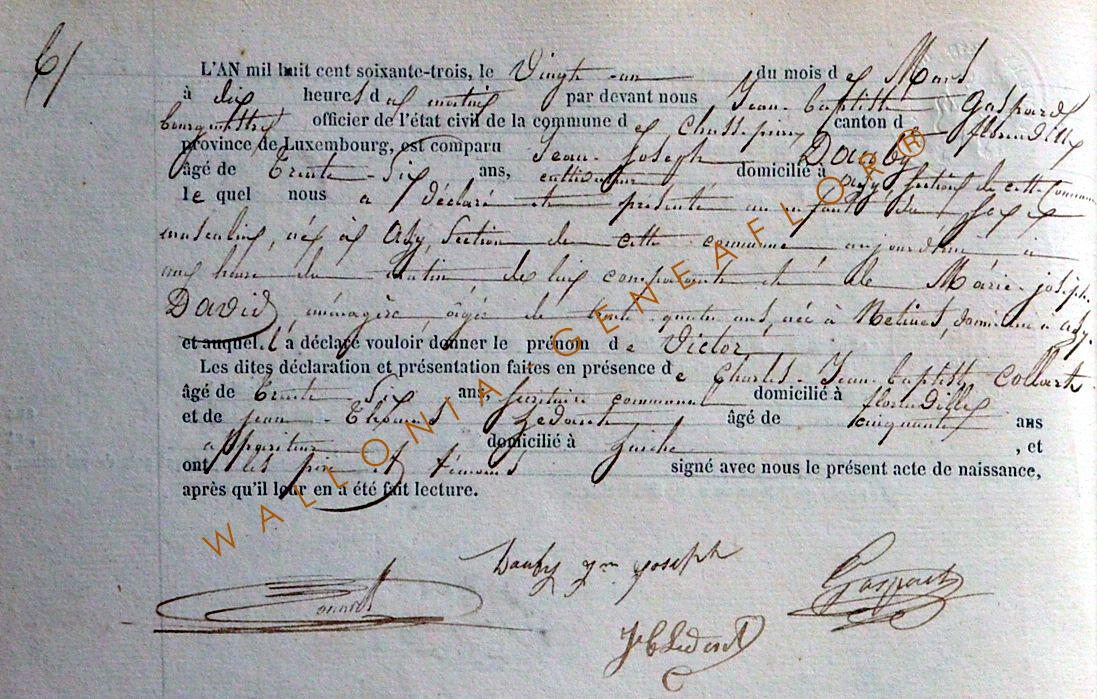 6/
L'AN mil huit cent soixante-trois, le Vingt-un du mois de Mars
à dix heures du matin par devant nous Jean-baptiste Gaspard
bourgmestre officier de l'état civil de la commune de Chassepierre, canton d florenville
province de Luxembourg, est comparu Jean-Joseph Dauby
âgé de Trente-Six ans, cultivateur domicilié à azy, section de cette commune
le quel nous a déclaré et présenté un enfant du sexe
masculin, né à Azy, section de cette commune aujourd'hui à
une heure du matin de lui comparant et de Marie-joseph
David, ménagère, âgée de trente quatre ans, née à domiciliée à azy.
et auquel il a déclaré vouloir donner le prénom de Victor
Les dites déclaration et présentation faites en présence de Charles-Jean-baptiste Collart
âgé de Trente-Six ans, secrétaire communal domicilié à florenville
et de jean-Thomas Ledoux âgé de cinquante ans
appariteur domicilié à , et
ont les père et témoins signé avec nous le présent acte de naissance,
après qu'il leur en a été fait lecture.
Dauby Jn joseph
Gaspard
WALLONIA GENEAFLOR®